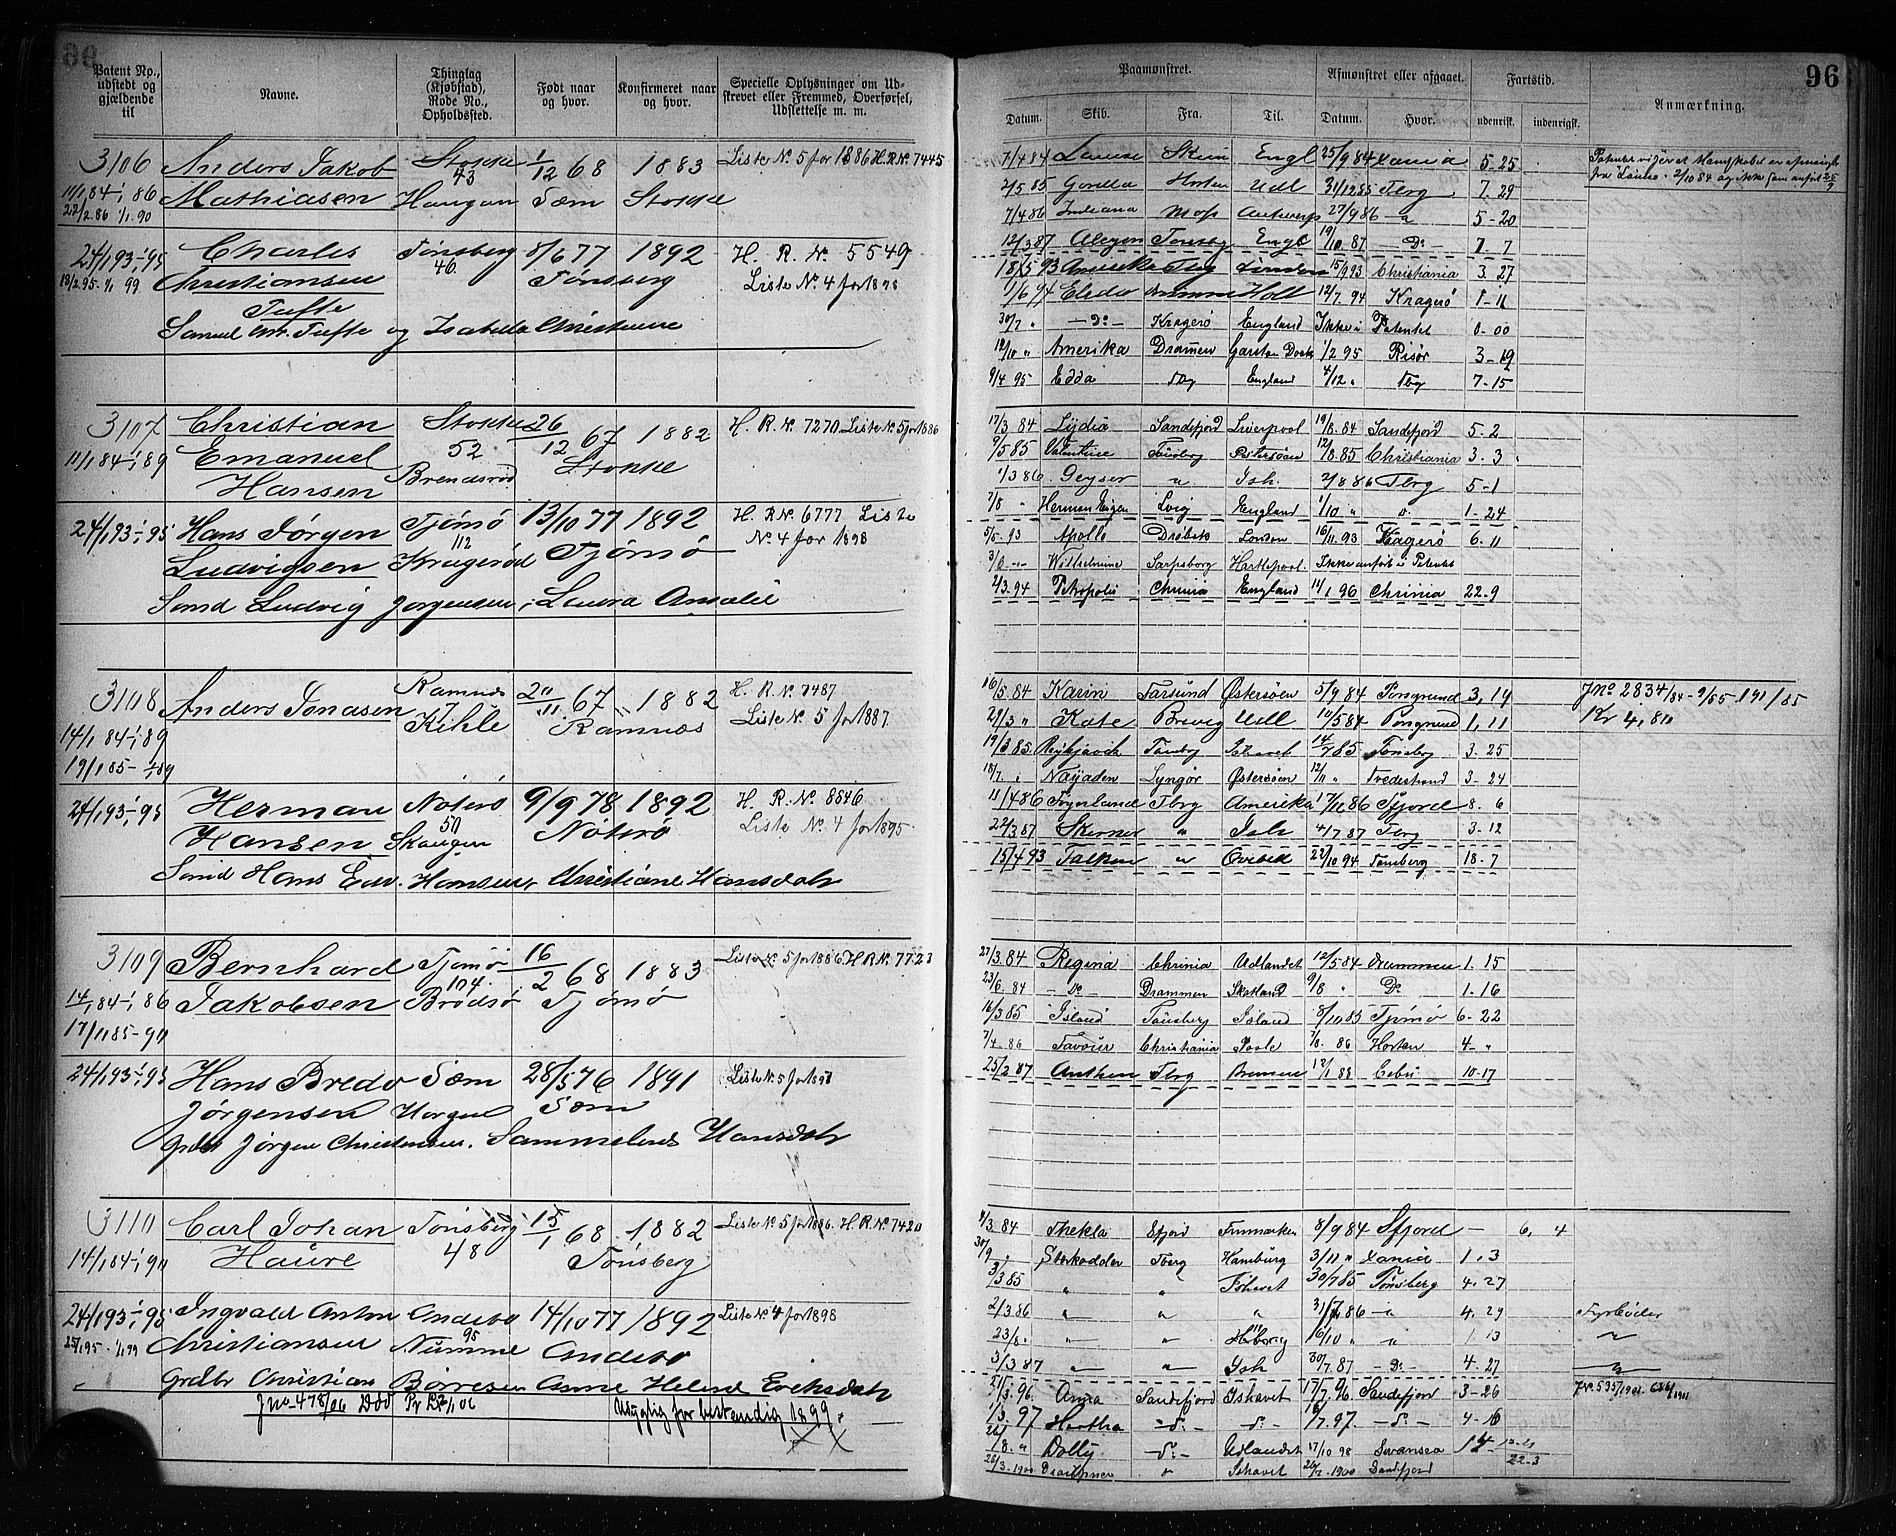 96
Patent No., udstedt og gjældende til
Navne.
Thinglag (Kjøbstad), Rode No., Opholdssted.
Født naar og hvor.
Konfirmeret naar og hvor.
Specielle Oplysninger om Udskrevet eller Fremmed, Overførsel, Udslettelse m. m.
3106 Anders Jakob Stokke 1/12 68 1883 Liste No. 5 for 1886 H.R.No. 7445
43
11/1 84-1/1 86 Mathiasen Haugan Sæm Stokke
22/2.86 1/1.90
24/1 93-1/1 95 Charles Tønsberg 8/6 77 1892 H. R. No. 5549
46.
18/2.95-1/1 99 Christiansen Tønsberg Liste No. 4 for 1898
Tufte
Samuel Chr. Tufte og Isabella Christiane
3107 Christian Stokke 26/12 67 1882 H. R. No. 7270 Liste No. 5 for 1886
11/1 84-1/1 89 Emanuel 52 Stokke
Hansen Brendsrød
24/1 93-1/1 95 Hans Jørgen Tjømø 13/10 77 1892 H. R. No. 6777 Liste
112 No. 4 for 1898
Ludvigsen Kragerød Tjømø
Ludvig Jørgensen, Laura Amalie
3108 Anders Jonasen Ramnes 20/11 67 1882 H. R. No. 7487
7
Kihle Ramnæs Liste No. 5 for 1887.
14/1 84-1/1 89
19/1 85-1/1 89
24/1 93-1/1 95 Herman Nøterø 9/9 78 1892 H. R. No. 8546
50
Hansen Skaugen Nøterø Liste No. 4 for 1895.
Hans Edv. Hansen, Christiane Hansdatr
3109 Bernhard Tjømø 16/2 68 1883 Liste No. 5 for 1886 H.R.No. 7723
104.
14/1 84-1/1 86 Jakobsen Brødsø Tjømø
17/1 85-90
24/1 93-1/1 95 Hans Bredo Sæm 28/5 76 1891 Liste No. 5 for 1898
Jørgensen Horgen Sæm
Jørgen Christensen. Hansdatr
3110 Carl Johan Tønsberg 15/1 68 1882 Liste No. 5 for 1886. H.R.No. 7420
14/1 84-1/1 90 Haure 48 Tønsberg
24/1 93-1/1 95 Ingvald Anton Andebo 14/10 77 1892 Liste No. 4 for 1898
95
Christiansen Numme Andebo
Christian Børresen Anne Helene Eriksdatr
Jno 478/06 Død
for bestandig 1899.
Paamønstret.
Afmønstret eller afgaaet.
Fartstid.
Anmærkning.
96
Datum. Skib. Fra. Til. Datum. Hvor. udenrigsk. indenrigsk.
7/4 84 Louise Skien Engl 25/9 84 Xania 5-25
2/5 85 Gorilla Horten Udl 31/12 85 Tbrg 7.29
7/4 86 Indiana Moss Antwerp 27/9 86 " 5-20
12/3 87 Tønsbg Engl 19/10.87 -Do- 7.7
18/5 93 Amerika Tbrg London 15/9 93 Christiania 3.27
1/6 94 Drammen Holl 12/7.94 Kragerø 1-11
30/7 " -Do- Kragerø England Ikke i Patentet 0-00
12/10 " Amerika Drammen Garston Dock 1/2 95 Risør 3-19
9/4 95 Edda Tbg England 4/12 " Tbg 7-15
17/3 84 Lydia Sandefjord Liverpool 19/8.84 Sandefjord 5-2
9/5.85 Valentine Tønsberg Østersøen 12/8.85 Christiania 3.3
1/3 86 Geyser " Ish. 2/8 86 Tbrg 5-1
7/8 " Lvig England 1/10 " " 1-24
5/5-93 Apollo Drøbak London 16/11.93 Kragerø 6.11
3/6 -"- Wilhelmine Sarpsborg Hartlepool. Ikke anført i Patentet
2/3.94 Petropolis Chrinia England 14/1 96 Chrinia 22-9
16/5.84 Karin Farsund Østersøen 5/9.84 Porsgrund 3,19 Jno 2834/84-9/85 191/85
29/3 " Kate Brevig Udl 10/5 84 Porsgrund 1,11 Kr 4,80
19/3 85. Reykjavik Tønsberg Ishavet 14/7 85 Tønsberg 3-25
18/7. " Najaden Lyngør Østersøen 12/11 " Tvedestrand 3-24
11/4 86 Tbrg Amerika 17/11 86 Sfjord 8.6
22/3 87 Skirner " Ish 4/7 87 Tbrg 3-12
15/4 93 Falken " 22/10.94 Tønsberg 18-7
27/3.84 Regina Chrinia Udlandet 12/5 84 Drammen 1.15
23/6.84 -Do- Drammen Skotland 9/8 " Do 1-16
16/3 85 Island Tønsberg Island 8/10 85 Tjømø 6-22
7/4.86 Favour Christiania Poole 7/8.86 Horten 4-"
25/2 87 Tbrg Bremen 12/1 88 Cebu 10-17
4/3.84 Thekla Sfjord Finmarken 8/9 84 Sfjord - 6. 4
30/9 " Størkodder Tberg Hamburg 3/11 " Xania 1.3
3/3 85 " " Ishavet 30/7 85 Tønsberg 4.27
2/3.86 " " " 31/7 86 -" 4.29 Fyrbøder
23/8. " " Hborg 16/10 " " 1.13 "
3/3 87 " " Ish 30/7.87 -Do- 4.27
21/3.96. Anna Sandefjord Ishavet 17/7.96 Sandefjord 3-26
1/3.97 Hertha -do.- -do.- 16/7.97. -do.- 4-16
1/8." Dolly -do.- Udlandet 17/10 98 Swansea
22-3
26/3-1900 " Ishavet 26/7-1900 Sandefjord